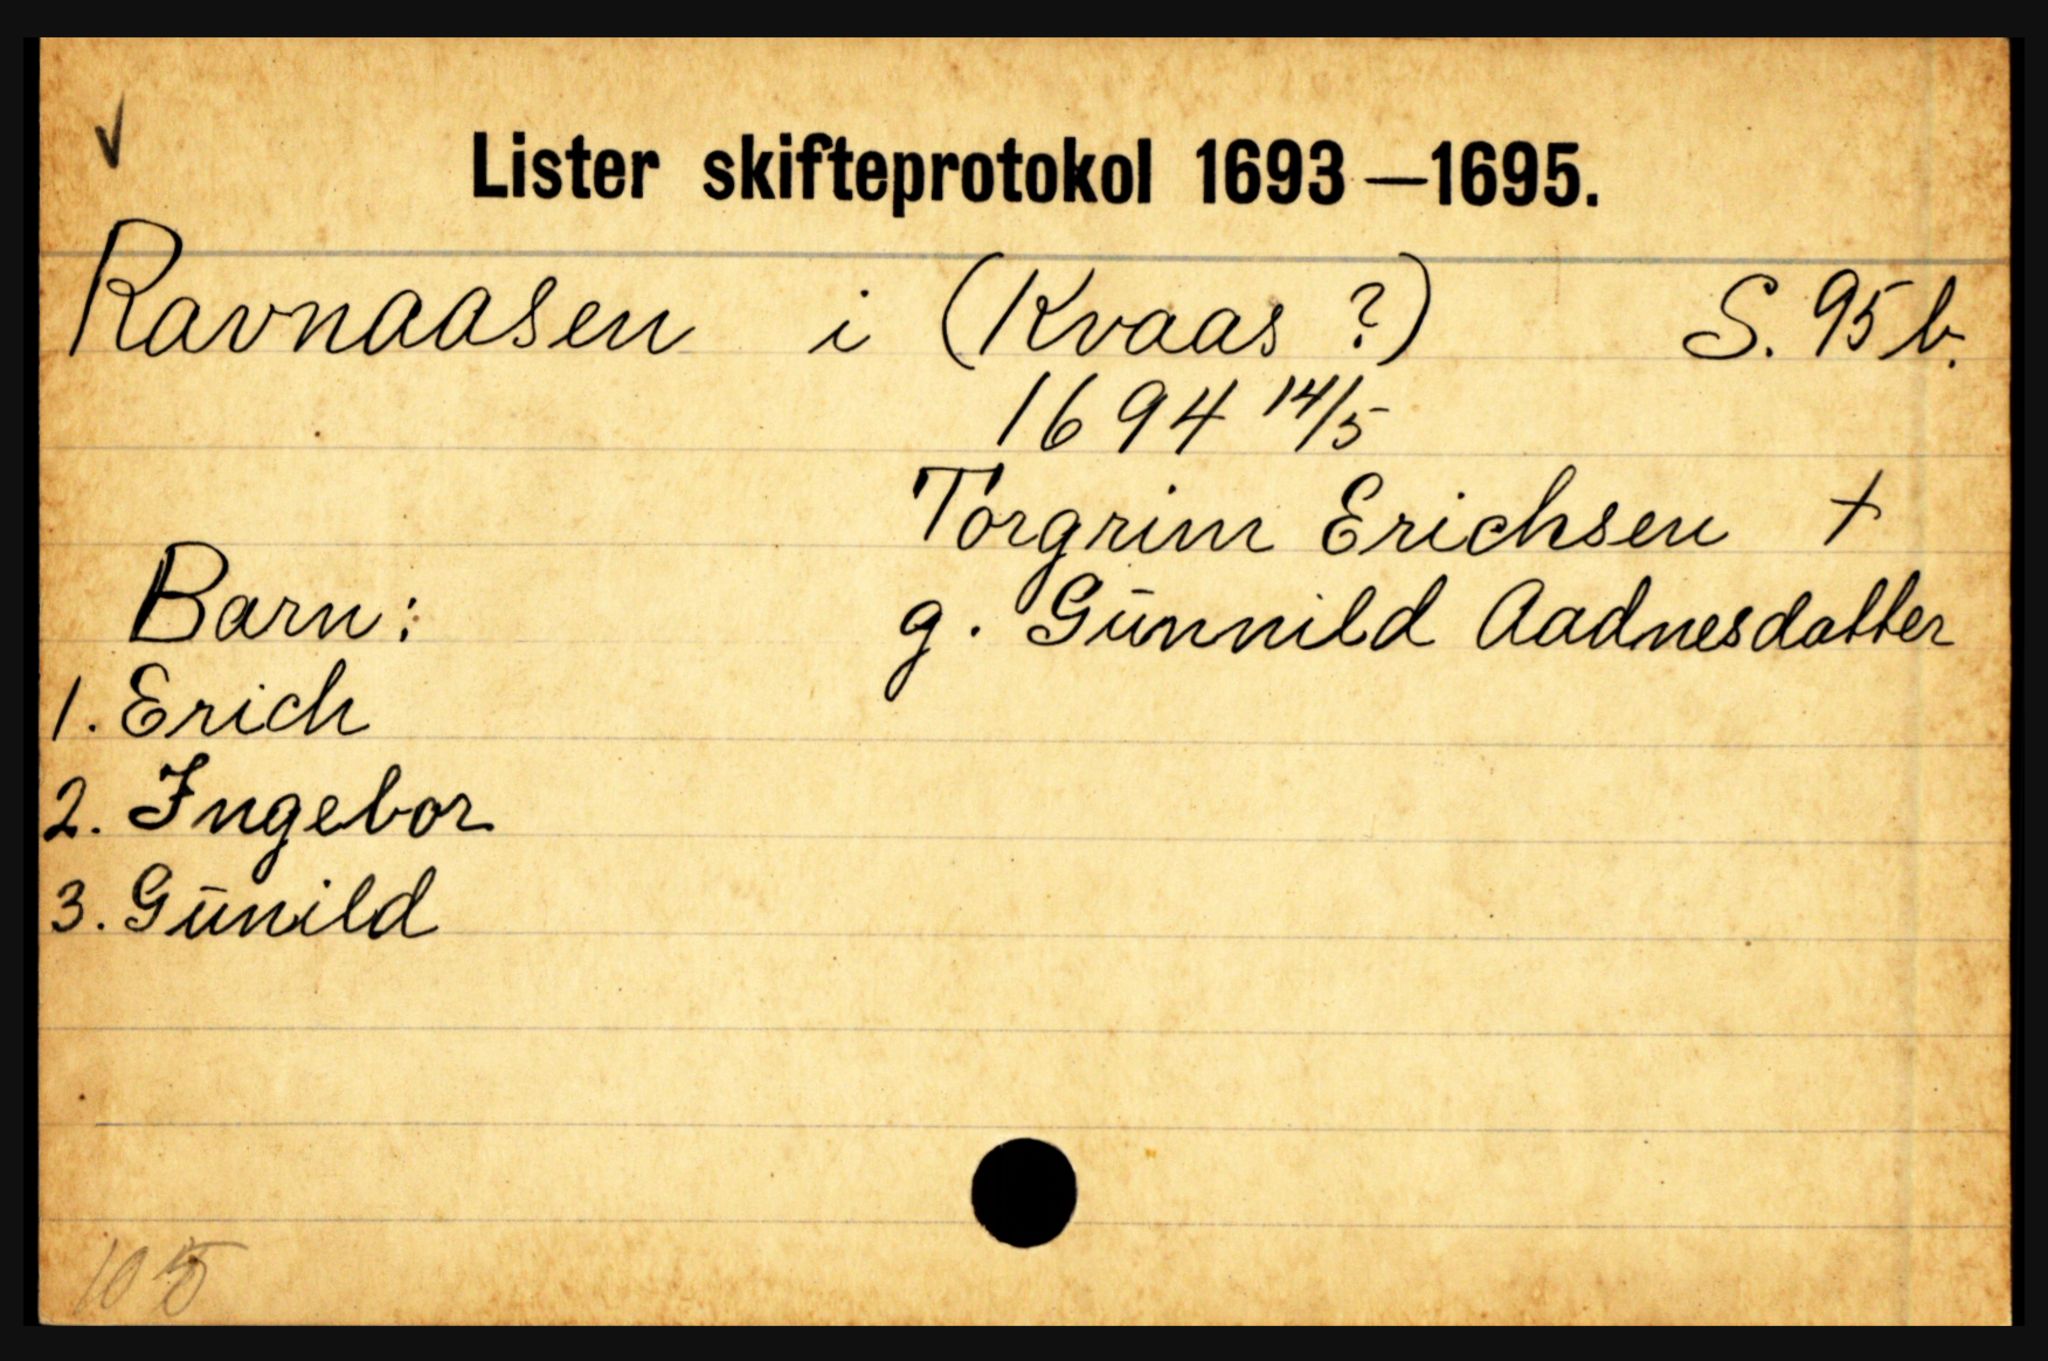 ✓
Lister skifteprotokol 1693—1695.
Ravnaasen i (Kvaas ?) S. 95 b.
1694 14/5
Torgrim Erichsen †
Barn: g. Gūnnild Aadnesdatter
1. Erich
2. Ingebor
3. Gūnild